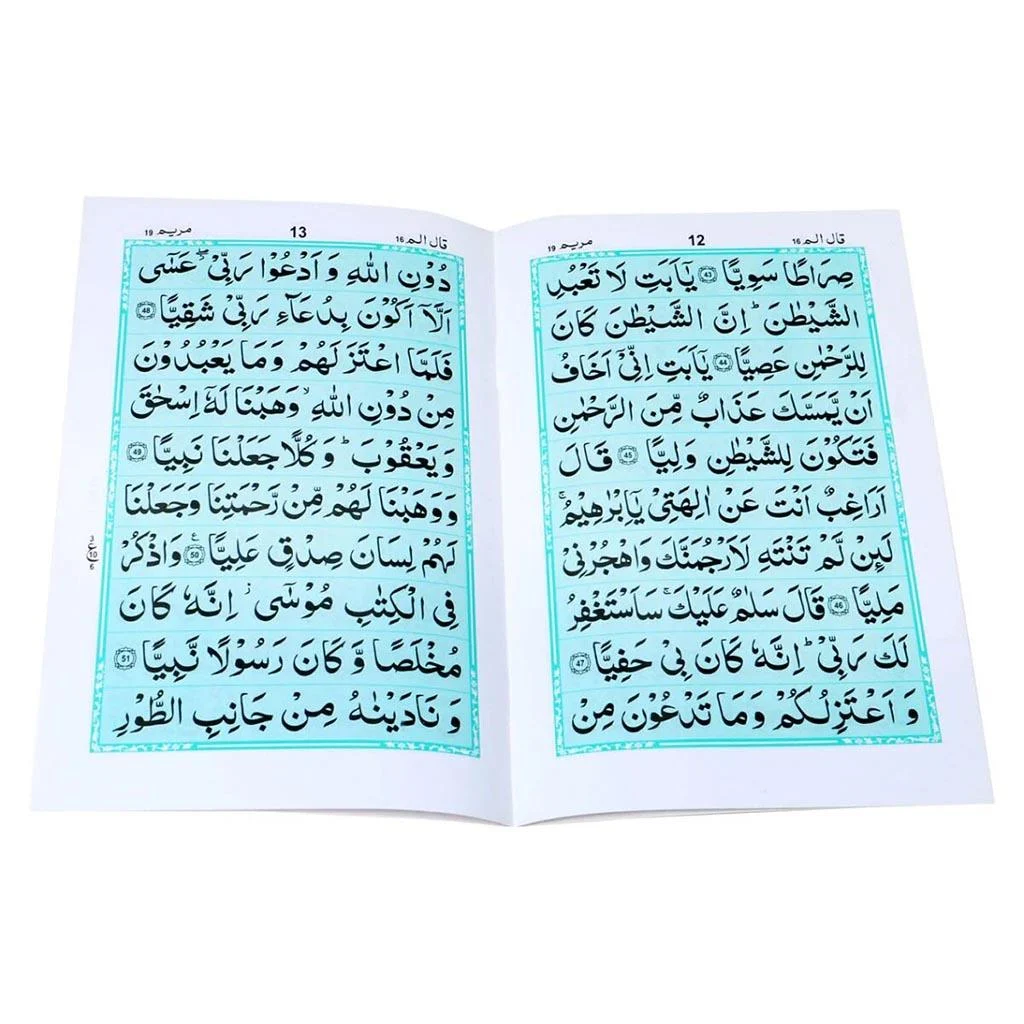 قال الم 16 12 مريم 19
صِرَاطًا سَوِيًّا 43 يٰۤاَبَتِ لَا تَعْبُدِ
الشَّيْطٰنَ ؕ اِنَّ الشَّيْطٰنَ كَانَ
لِلرَّحْمٰنِ عَصِيًّا 44 يٰۤاَبَتِ اِنِّيْۤ اَخَافُ
اَنْ يَّمَسَّكَ عَذَابٌ مِّنَ الرَّحْمٰنِ
فَتَكُوْنَ لِلشَّيْطٰنِ وَلِيًّا 45 قَالَ
اَرَاغِبٌ اَنْتَ عَنْ اٰلِهَتِيْ يٰۤاِبْرٰهِيْمُ ۚ
لَئِنْ لَّمْ تَنْتَهِ لَاَرْجُمَنَّكَ وَاهْجُرْنِيْ
مَلِيًّا 46 قَالَ سَلٰمٌ عَلَيْكَ ۚ سَاَسْتَغْفِرُ
لَكَ رَبِّيْ ؕ اِنَّهٗ كَانَ بِيْ حَفِيًّا 47
وَ اَعْتَزِلُكُمْ وَمَا تَدْعُوْنَ مِنْ
قال الم 16 13 مريم 19
دُوْنِ اللّٰهِ وَ اَدْعُوْا رَبِّيْ ۖ عَسٰۤى
اَلَّاۤ اَكُوْنَ بِدُعَآءِ رَبِّيْ شَقِيًّا 48
فَلَمَّا اعْتَزَلَهُمْ وَمَا يَعْبُدُوْنَ
مِنْ دُوْنِ اللّٰهِ ۙ وَهَبْنَا لَهٗۤ اِسْحٰقَ
وَيَعْقُوْبَ ؕ وَكُلًّا جَعَلْنَا نَبِيًّا 49
وَوَهَبْنَا لَهُمْ مِّنْ رَّحْمَتِنَا وَجَعَلْنَا
لَهُمْ لِسَانَ صِدْقٍ عَلِيًّا 50 ع وَاذْكُرْ
3 ع 10 6
فِي الْكِتٰبِ مُوْسٰۤى ۚ اِنَّهٗ كَانَ
مُخْلَصًا وَّ كَانَ رَسُوْلًا نَّبِيًّا 51
وَ نَادَيْنٰهُ مِنْ جَانِبِ الطُّوْرِ